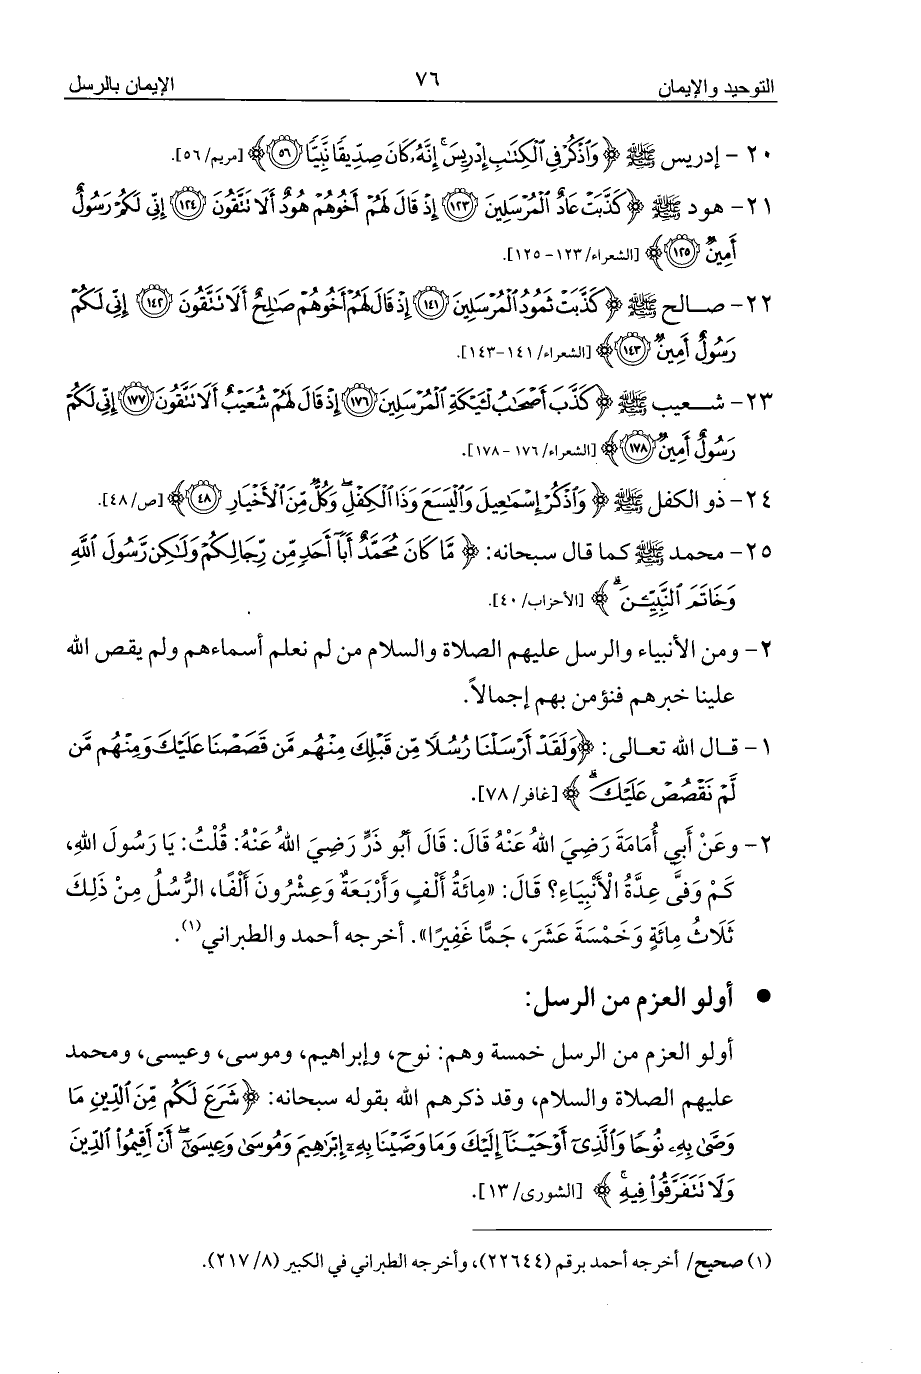 التوحيد والإيمان ٧٦ الإيمان بالرسل
٢٠ - إدريس ﷺ ﴿ وَٱذْكُرْ فِي ٱلْكِتَٰبِ إِدْرِيسَ ۚ إِنَّهُۥ كَانَ صِدِّيقًا نَّبِيًّا ٥٦﴾ [مريم/٥٦].
٢١- هود ﷺ ﴿كَذَّبَتْ عَادٌ ٱلْمُرْسَلِينَ ١٢٣ إِذْ قَالَ لَهُمْ أَخُوهُمْ هُودٌ أَلَا تَتَّقُونَ ١٢٤ إِنِّي لَكُمْ رَسُولٌ
أَمِينٌ ١٢٥﴾ [الشعراء/١٢٣-١٢٥].
٢٢- صالح ﷺ ﴿كَذَّبَتْ ثَمُودُ ٱلْمُرْسَلِينَ ١٤١ إِذْ قَالَ لَهُمْ أَخُوهُمْ صَٰلِحٌ أَلَا تَتَّقُونَ ١٤٢ إِنِّي لَكُمْ
رَسُولٌ أَمِينٌ ١٤٣﴾ [الشعراء/١٤١-١٤٣].
٢٣- شعيب ﷺ ﴿كَذَّبَ أَصْحَٰبُ لْـَٔيْكَةِ ٱلْمُرْسَلِينَ ١٧٦ إِذْ قَالَ لَهُمْ شُعَيْبٌ أَلَا تَتَّقُونَ ١٧٧ إِنِّي لَكُمْ
رَسُولٌ أَمِينٌ ١٧٨﴾ [الشعراء/١٧٦-١٧٨].
٢٤- ذو الكفل ﷺ ﴿ وَٱذْكُرْ إِسْمَٰعِيلَ وَٱلْيَسَعَ وَذَا ٱلْكِفْلِ ۖ وَكُلٌّ مِّنَ ٱلْأَخْيَارِ ٤٨﴾ [ص/٤٨].
٢٥- محمد ﷺ كما قال سبحانه: ﴿ مَّا كَانَ مُحَمَّدٌ أَبَآ أَحَدٍ مِّن رِّجَالِكُمْ وَلَٰكِن رَّسُولَ ٱللَّهِ
وَخَاتَمَ ٱلنَّبِيِّـۧنَ ۗ ﴾ [الأحزاب/٤٠].
٢- ومن الأنبياء والرسل عليهم الصلاة والسلام من لم نعلم أسماءهم ولم يقص الله
علينا خبرهم فنؤمن بهم إجمالاً.
١- قال الله تعالى: ﴿وَلَقَدْ أَرْسَلْنَا رُسُلًا مِّن قَبْلِكَ مِنْهُم مَّن قَصَصْنَا عَلَيْكَ وَمِنْهُم مَّن
لَّمْ نَقْصُصْ عَلَيْكَ ۗ ﴾ [غافر/٧٨].
٢- وعَنْ أَبِي أُمَامَةَ رَضِيَ اللهُ عَنْهُ قَالَ: قَالَ أَبُو ذَرٍّ رَضِيَ اللهُ عَنْهُ: قُلْتُ: يَا رَسُولَ اللهِ،
كَمْ وَفَّى عِدَّةُ الْأَنْبِيَاءِ؟ قَالَ: «مِائَةُ أَلْفٍ وَأَرْبَعَةٌ وَعِشْرُونَ أَلْفًا، الرُّسُلُ مِنْ ذَلِكَ
ثَلَاثُ مِائَةٍ وَخَمْسَةَ عَشَرَ، جَمًّا غَفِيرًا». أخرجه أحمد والطبراني(١).
● أولو العزم من الرسل:
أولو العزم من الرسل خمسة وهم: نوح، وإبراهيم، وموسى، وعيسى، ومحمد
عليهم الصلاة والسلام، وقد ذكرهم الله بقوله سبحانه: ﴿شَرَعَ لَكُم مِّنَ ٱلدِّينِ مَا
وَصَّىٰ بِهِۦ نُوحًا وَٱلَّذِيٓ أَوْحَيْنَآ إِلَيْكَ وَمَا وَصَّيْنَا بِهِۦٓ إِبْرَٰهِيمَ وَمُوسَىٰ وَعِيسَىٰٓ ۖ أَنْ أَقِيمُوا۟ ٱلدِّينَ
وَلَا تَتَفَرَّقُوا۟ فِيهِ ۚ ﴾ [الشورى/١٣].
(١) صحيح/ أخرجه أحمد برقم (٢٢٦٤٤)، وأخرجه الطبراني في الكبير (٨/ ٢١٧).